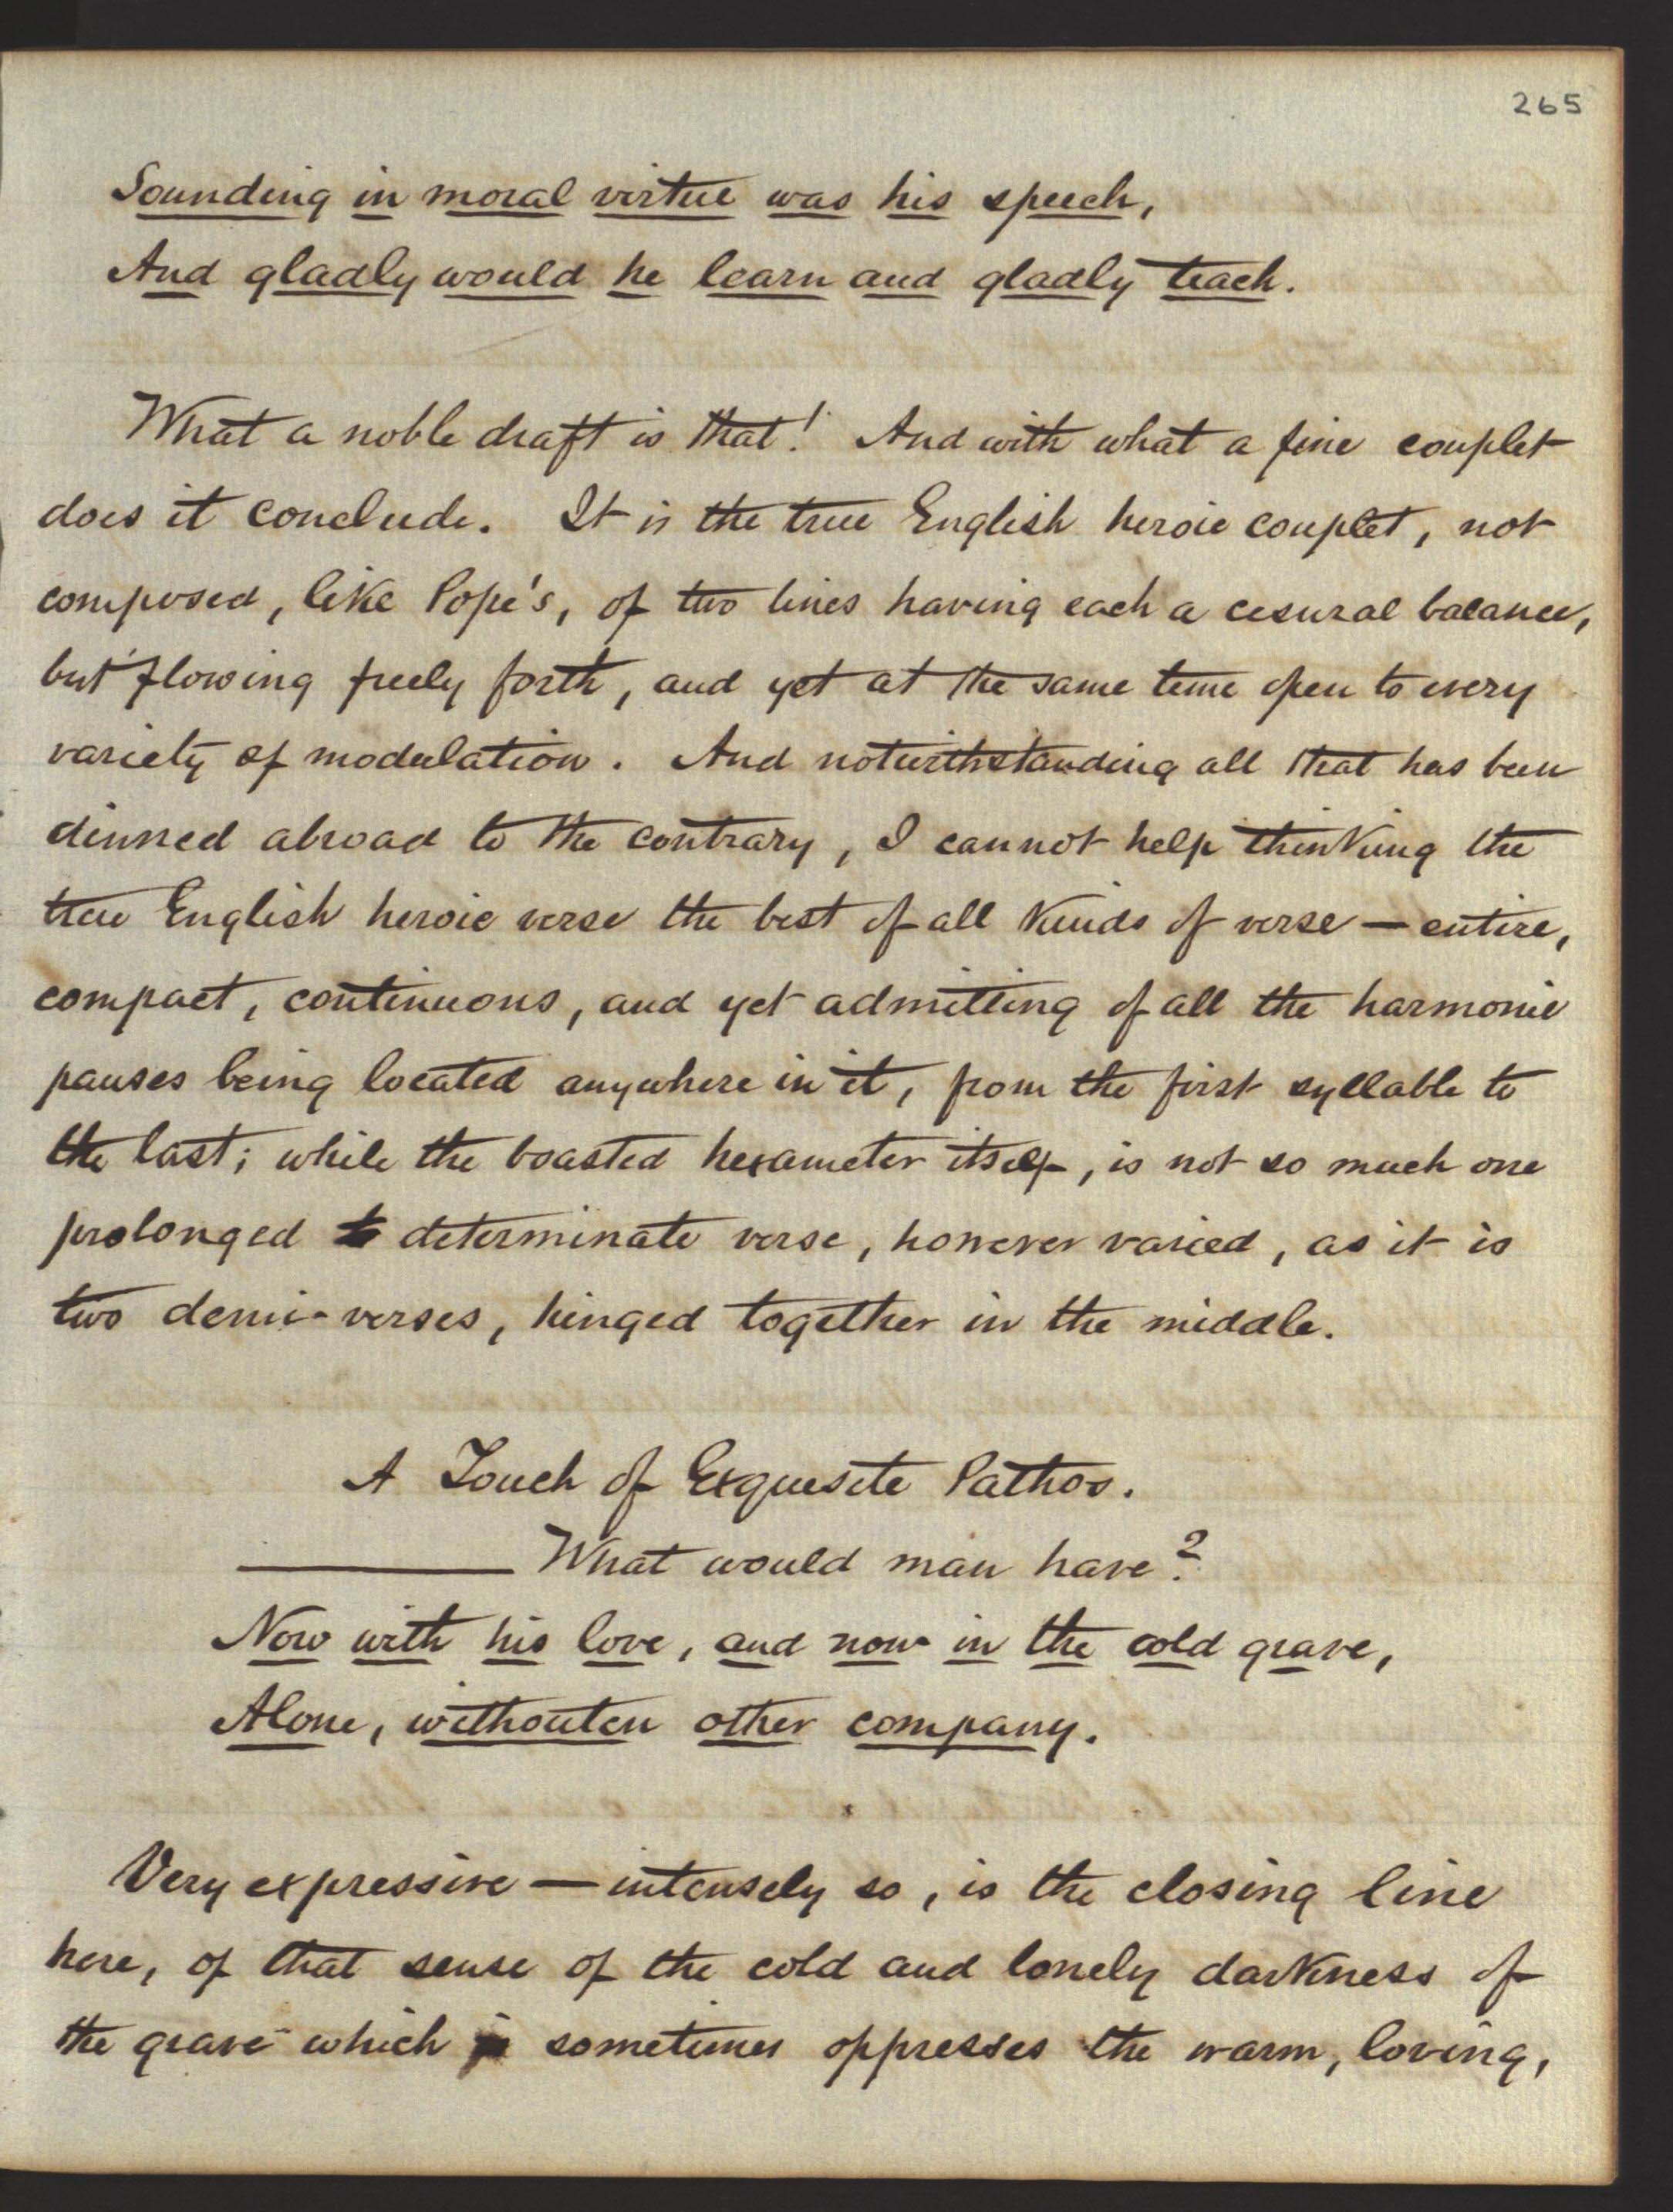 265
Sounding in moral virtue was his speech,
And gladly would he learn and gladly teach.
What a noble draft is that! And with what a fine couplet
does it conclude. It is the true English heroic couplet, not
composed, like Pope's, of two lines having each a cesural balance,
but flowing freely forth, and yet at the same time open to every
variety of modulation. And notwithstanding all that has been
dinned abroad to the contrary, I cannot help thinking the
true English heroic verse the best of all kinds of verse — entire,
compact, continuous, and yet admitting of all the harmonic
pauses being located anywhere in it, from the first syllable to
the last; while the boasted hexameter itself, is not so much one
prolonged determinate verse, however varied, as it is
two demi-verses, hinged together in the middle.
A Touch of Exquisite Pathos.
——— What would man have?
Now with his love, and now in the cold grave,
Alone, withouten other company.
Very expressive — intensely so, is the closing line
here, of that sense of the cold and lonely darkness of
the grave which sometimes oppresses the warm, loving,